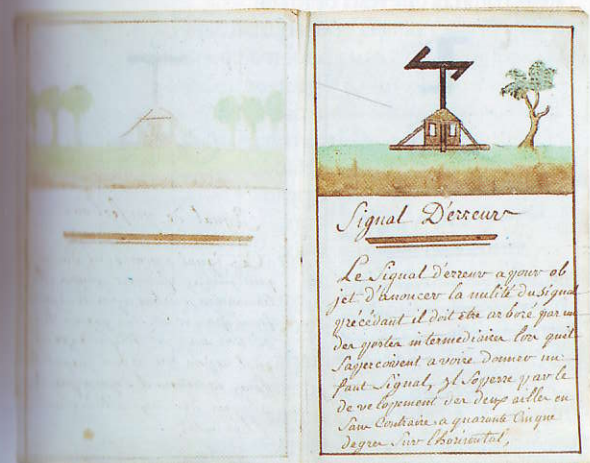 Signal D'erreur
Le Signal d'erreur a pour ob
jet d'anoncer la nulité du Signal
précédant il doit être arboré par un
des postes intermediaires lors qu'il
S'apercoivent avoire donner un
faut Signal, il S'opere par le
developement des deux ailles en
Sans Contraire a quarante Cinque
degres Sur l'horisontal,